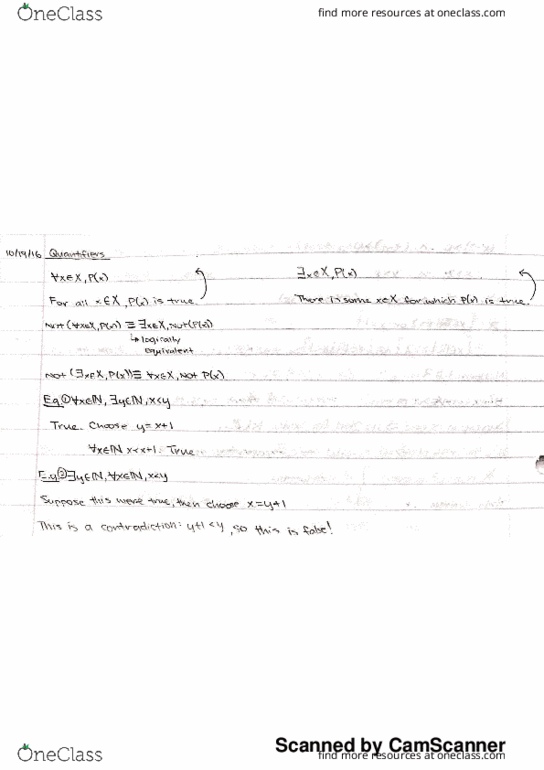 OneClass
find more resources at oneclass.com
10/19/16 Quantifiers
∀x∈X, P(x)
∃x∈X, P(x)
For all x∈X, P(x) is true.
There is some x∈X for which P(x) is true.
Not (∀x∈X, P(x)) ≡ ∃x∈X, Not (P(x))
↳ logically
equivalent
Not (∃x∈X, P(x)) ≡ ∀x∈X, Not P(x)
E.g. ① ∀x∈ℕ, ∃y∈ℕ, x<y
True. Choose y=x+1
∀x∈ℕ x<x+1. True
E.g. ② ∃y∈ℕ, ∀x∈ℕ, x<y
Suppose this were true, then choose x=y+1
This is a contradiction: y+1<y, so this is false!
Scanned by CamScanner
OneClass
find more resources at oneclass.com